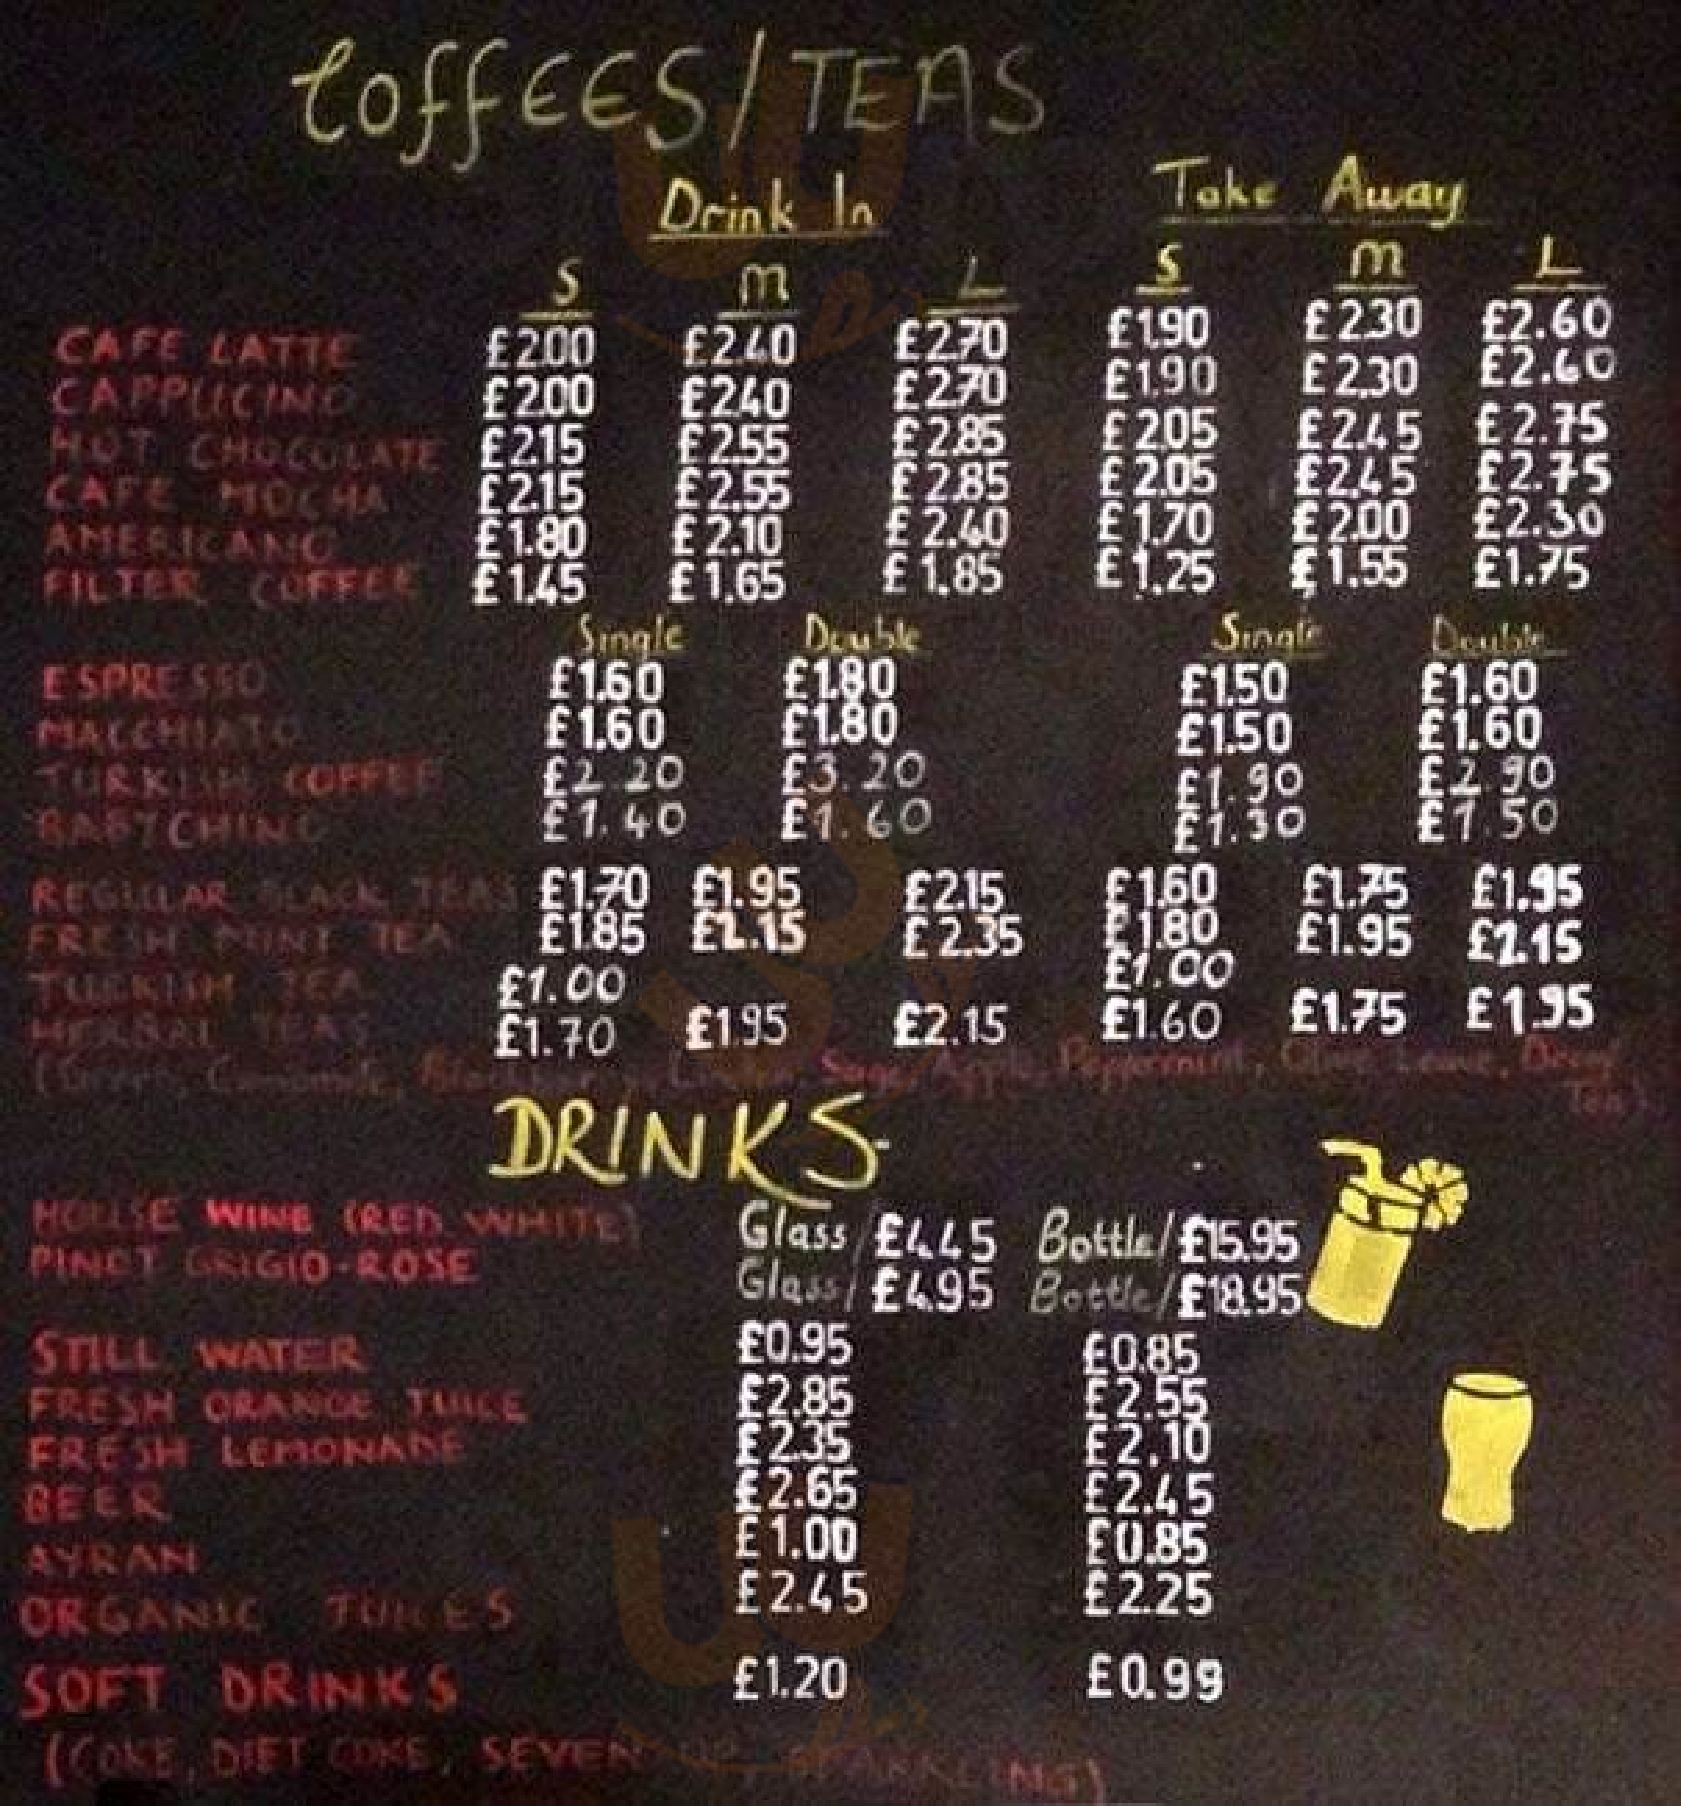 Coffees/TEAS
Drink In Take Away
S M L S M L
CAFE LATTE £2.00 £2.40 £2.70 £1.90 £2.30 £2.60
CAPPUCINO £2.00 £2.40 £2.70 £1.90 £2.30 £2.60
HOT CHOCOLATE £2.15 £2.55 £2.85 £2.05 £2.45 £2.75
CAFE MOCHA £2.15 £2.55 £2.85 £2.05 £2.45 £2.75
AMERICANO £1.80 £2.10 £2.40 £1.70 £2.00 £2.30
FILTER COFFEE £1.45 £1.65 £1.85 £1.25 £1.55 £1.75
Single Double Single Double
ESPRESSO £1.60 £1.80 £1.50 £1.60
MACCHIATO £1.60 £1.80 £1.50 £1.60
TURKISH COFFEE £2.20 £3.20 £1.90 £2.90
BABYCHINO £1.40 £1.60 £1.30 £1.50
REGULAR BLACK TEAS £1.70 £1.95 £2.15 £1.60 £1.75 £1.95
FRESH MINT TEA £1.85 £2.15 £2.35 £1.80 £1.95 £2.15
TURKISH TEA £1.00 £1.00
HERBAL TEAS £1.70 £1.95 £2.15 £1.60 £1.75 £1.95
(Green, Camomile, Sage, Apple, Peppermint, Olive
Tea)
DRINKS
HOUSE WINE (RED, WHITE) Glass/£4.45 Bottle/£15.95
PINOT GRIGIO-ROSE Glass/£4.95 Bottle/£18.95
STILL WATER £0.95 £0.85
FRESH ORANGE JUICE £2.85 £2.55
FRESH LEMONADE £2.35 £2.10
BEER £2.65 £2.45
AYRAN £1.00 £0.85
ORGANIC JUICES £2.45 £2.25
SOFT DRINKS £1.20 £0.99
(COKE, DIET COKE, SEVEN UP, SPARKLING)